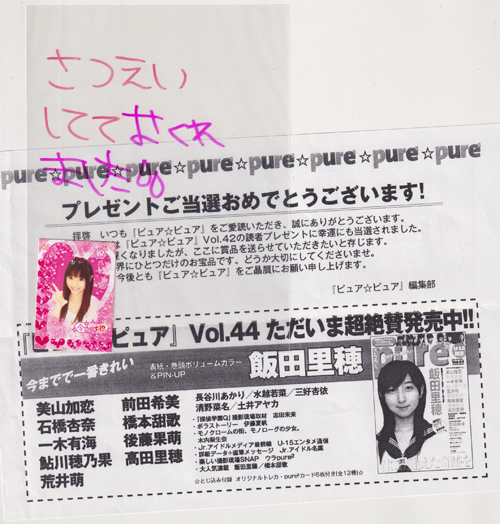 さつえい
してておくれ
ました
pure☆pure☆pure☆pure☆pure☆pure☆pure
プレゼントご当選おめでとうございます!
拝啓 いつも『ピュア☆ピュア』をご愛読いただき、誠にありがとうございます。
は『ピュア☆ピュア』Vol.42の読者プレゼントに幸運にも当選されました。
なりましたが、ここに賞品を送らせていただきたいと存じます。
界にひとつだけのお宝品です。どうか大切にしてくださいませ。
今後とも『ピュア☆ピュア』をご贔屓にお願い申し上げます。
『ピュア☆ピュア』編集部
ピュア』Vol.44 ただいま超絶賛発売中!!
今までで一番きれい
表紙・巻頭ボリュームカラー
&PIN-UP
飯田里穂
美山加恋 前田希美
石橋杏奈 橋本甜歌
一木有海 後藤果萌
鮎川穂乃果 高田里穂
荒井萌
長谷川あかり/水越若菜/三好杏依
清野菜名/土井アヤカ
・『探偵学園Q』撮影現場取材 志田未来
・ポラストーリー 伊藤夏帆
・モノクロームの街、モノローグの少女。
木内梨生奈
・Jr.アイドルメディア最前線 U-15エンタメ通信
・詳細データ+直筆メッセージ Jr.アイドル名鑑
・楽しい撮影現場SNAP ウラpure²
・大人気連載 飯田里穂/橋本甜歌
☆とじ込み付録 オリジナルトレカ・pure²カード6枚付き(全12種)☆
pure
飯田里穂